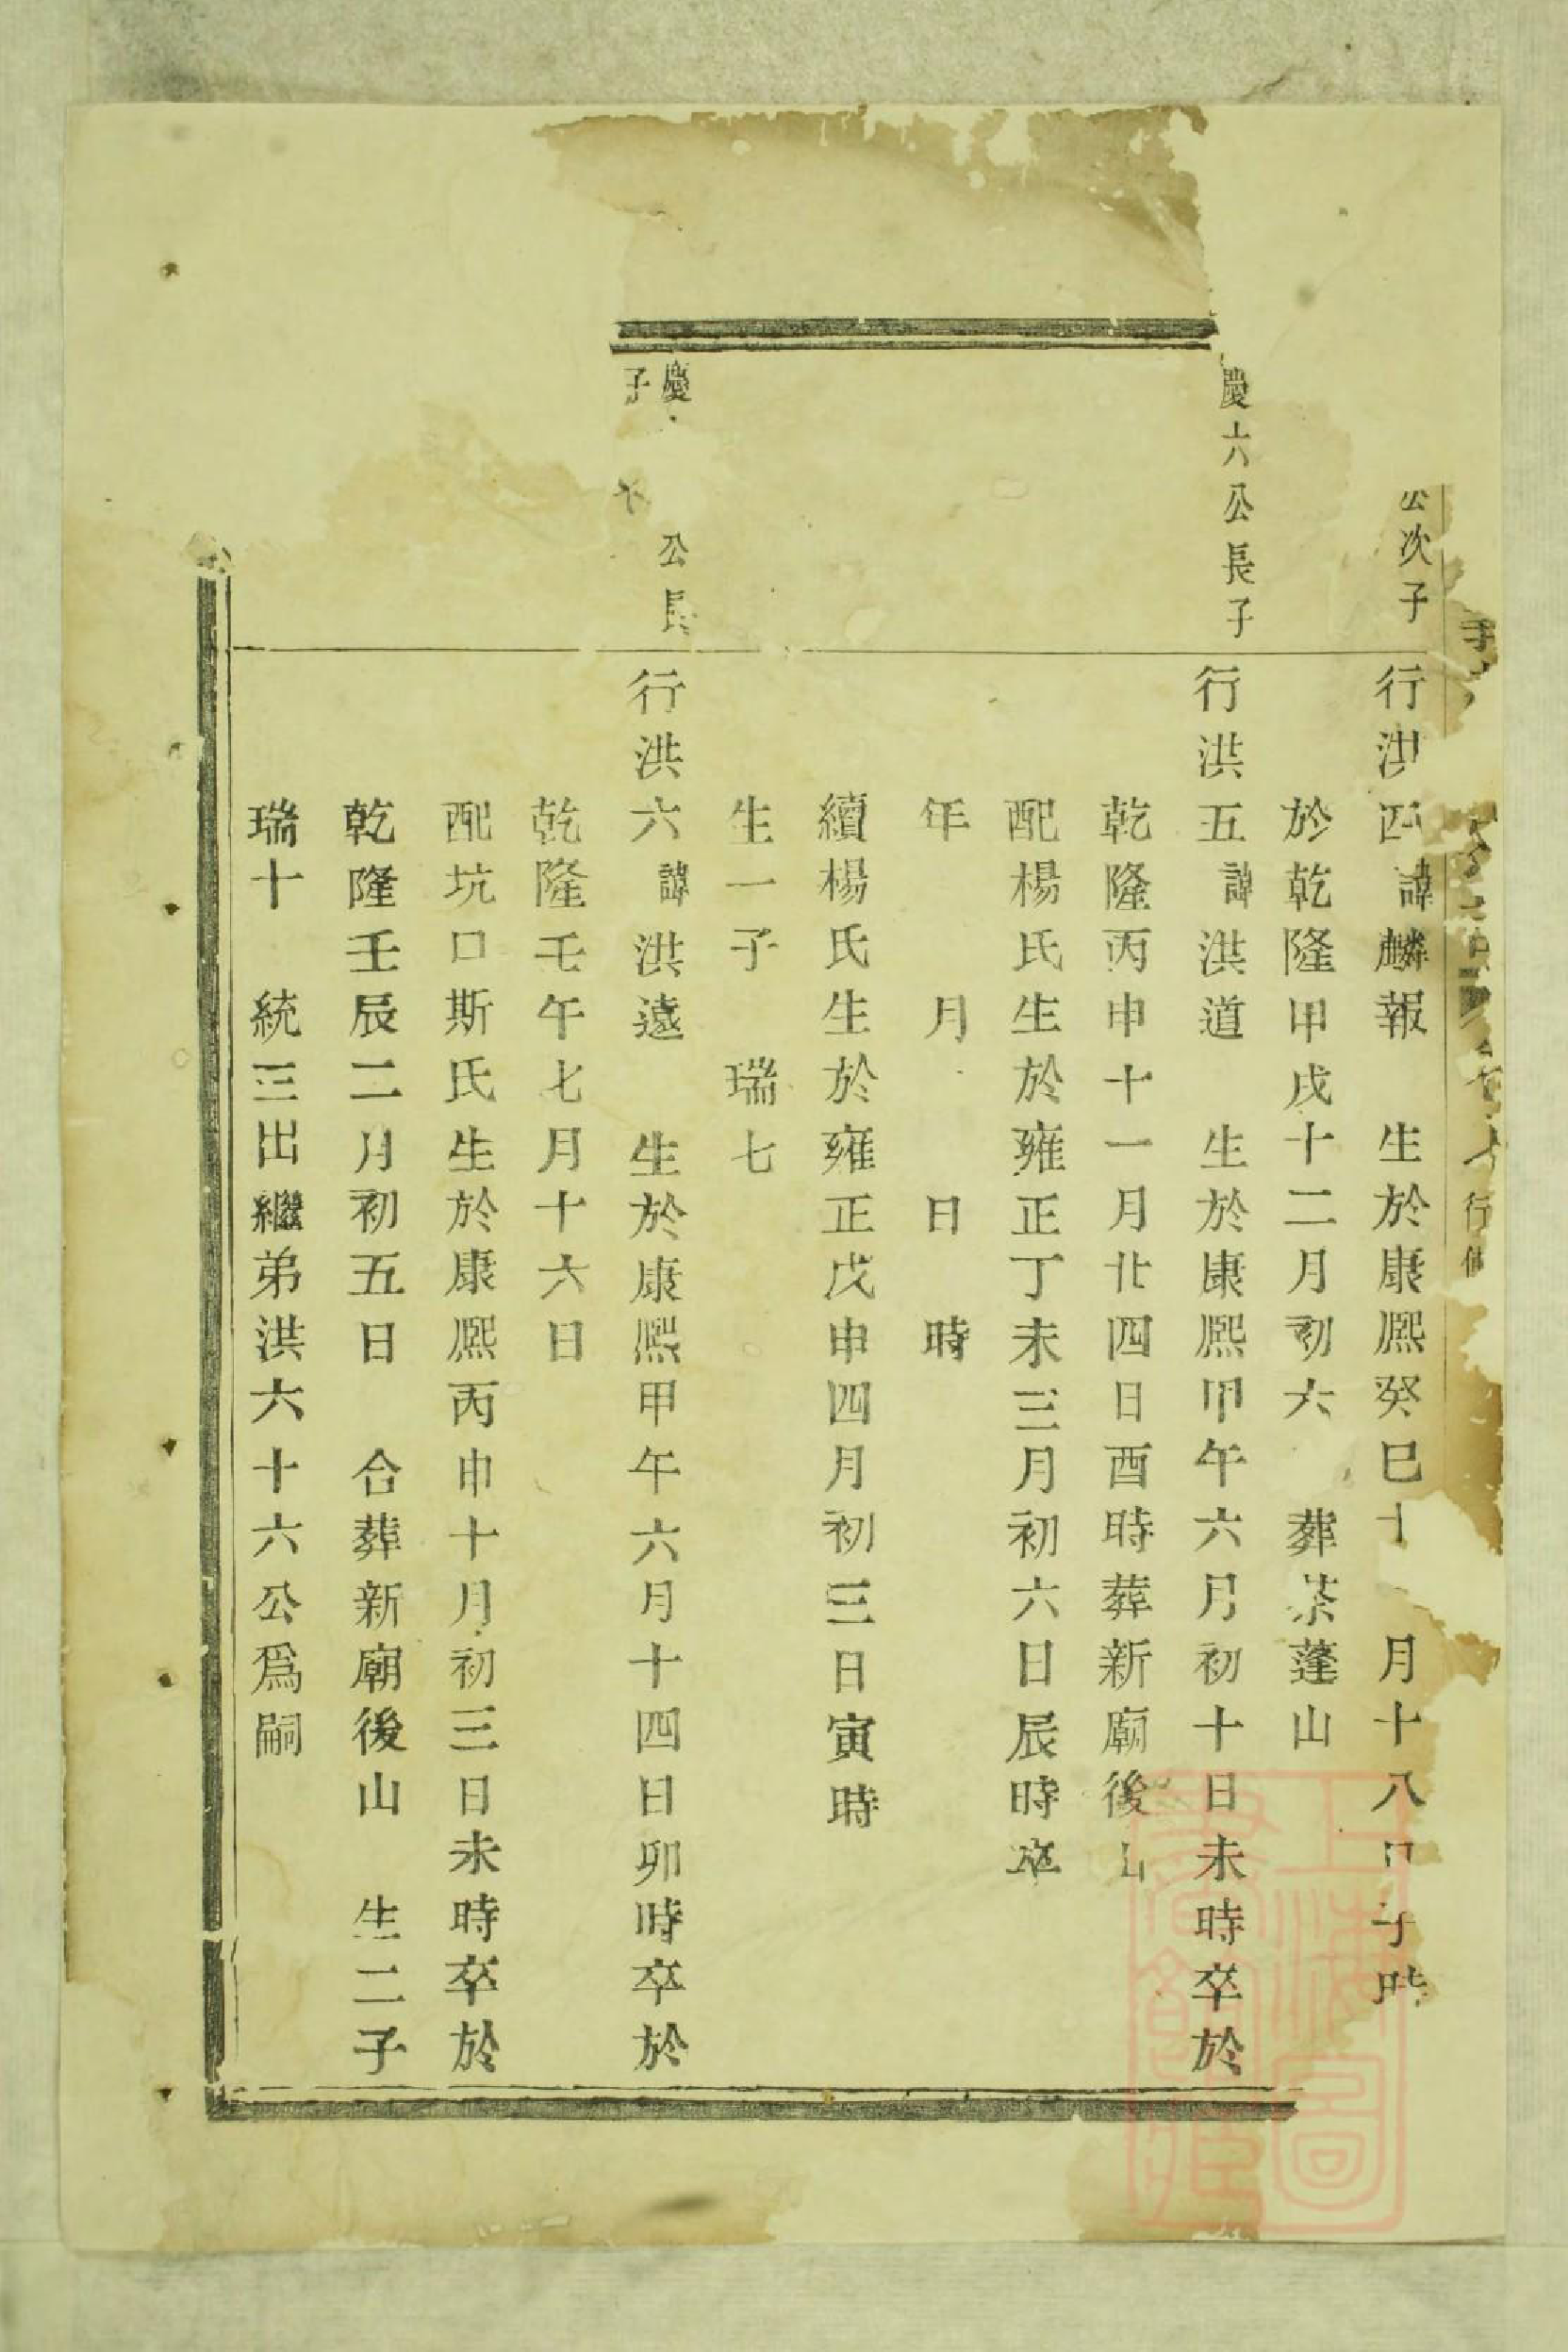 公次子
行洪四諱麟報　生於康熙癸巳十　月十八日子時
於乾隆甲戌十二月初六　葬茶蓬山
慶六公長子
行洪五諱洪道　生於康熙甲午六月初十日未時卒於
乾隆丙申十一月廿四日酉時葬新廟後山
配楊氏生於雍正丁未三月初六日辰時卒
年　月　日　時
續楊氏生於雍正戊申四月初三日寅時
生一子　瑞七
慶　公長
子
行洪六諱洪遠　生於康熙甲午六月十四日卯時卒於
乾隆壬午七月十六日
配坑口斯氏生於康熙丙申十月初三日未時卒於
乾隆壬辰二月初五日　合葬新廟後山　生二子
瑞十　統三出繼弟洪六十六公爲嗣
上海圖書館藏